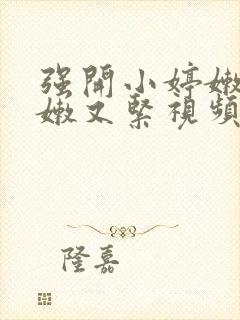 强開小婷嫩
嫩又緊視頻
隆嘉